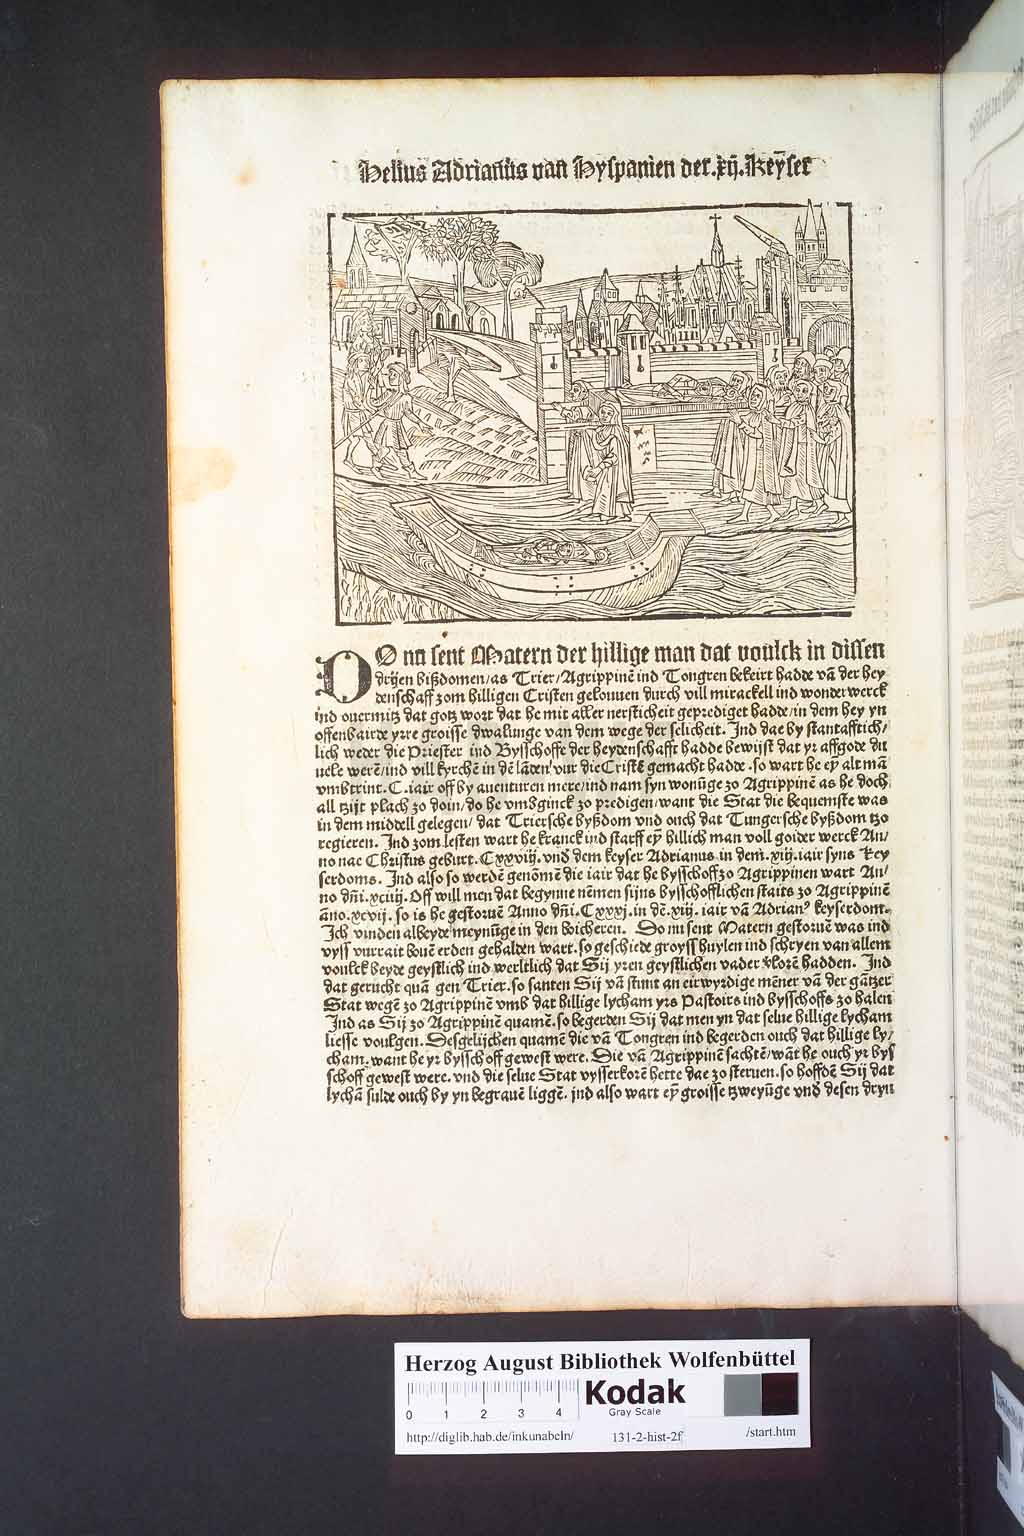 Helius Adrianus van Hyspanien der .xij. Keyser
DO nu sent Matern der hillige man dat voulck in dissen
dryen bißdomen/as Trier/Agrippinē ind Tongren bekeirt hadde vā der hey
denschaff zom hilligen Cristen gelouuen durch vill mirackell ind wonderwerck
ind ouermitz dat gotz wort dat he mit aller nersticheit geprediget hadde/in dem hey yn
offenbairde yrre groisse dwalunge van dem wege der selicheit. Ind dae by stantafftich/
lich weder die Priester ind Bysschoffe der heydenschafft hadde bewijst dat yr affgode du
uele werē/ind vill kyrchē in dē lāden vur die Cristē gemacht hadde. so wart he eȳ alt mā
vmbtrint. C. iair off by auenturen mere/ind nam syn wonūge zo Agrippinē as he doch
all tzijt plach zo doin/do he vmbginck zo predigen/want die Stat die bequemste was
in dem middell gelegen/ dat Triersche byßdom vnd ouch dat Tungersche byßdom tzo
regieren. Ind zom lesten wart he kranck ind starff eȳ hillich man voll goider werck An/
no nae Christus geburt. Cxxviij. vnd dem keyser Adrianus in dem .xiij. iair syns Key
serdoms. Ind also so werdē genōmē die iair dat he bysschoff zo Agrippinen wart An/
no dn̄i. xciiij. Off will men dat begynne nēmen sijns bysschofflichen staits zo Agrippinē
āno .xcvij. so is he gestoruē Anno dn̄i. Cxxxj. in dē .xiij. iair vā Adrianꝰ keyserdom.
Ich vinden albeyde meynūge in den boicheren. Do nu sent Matern gestoruē was ind
vyss vurrait bouē erden gehalden wart. so geschiede groyss huylen ind schryen van allem
voulck beyde geystlich ind werltlich dat Sij yren geystlichen vader vlorē hadden. Ind
dat gerucht quā gen Trier. so santen Sij vā stunt an eirwyrdige mēner vā der gātzer
Stat wegē zo Agrippinē vmb dat hillige lycham yrs Pastoirs ind bysschoffs zo halen
Ind as Sij zo Agrippinē quamē. so begerden Sij dat men yn dat selue hillige lycham
liesse voulgen. Desgelijchen quamē die vā Tongren ind begerden ouch dat hillige ly/
cham. want he yr bysschoff gewest were. Die vā Agrippinē sachtē/wāt he ouch yr bys
schoff gewest were. vnd die selue Stat vysserkorē hette dae zo steruen. so hoffdē Sij dat
lychā sulde ouch by yn begrauē liggē. ind also wart eȳ groisse tzweyūge vnd desen dryn
Herzog August Bibliothek Wolfenbüttel
0 1 2 3 4 Kodak
Gray Scale
http://diglib.hab.de/inkunabeln/ 131-2-hist-2f /start.htm